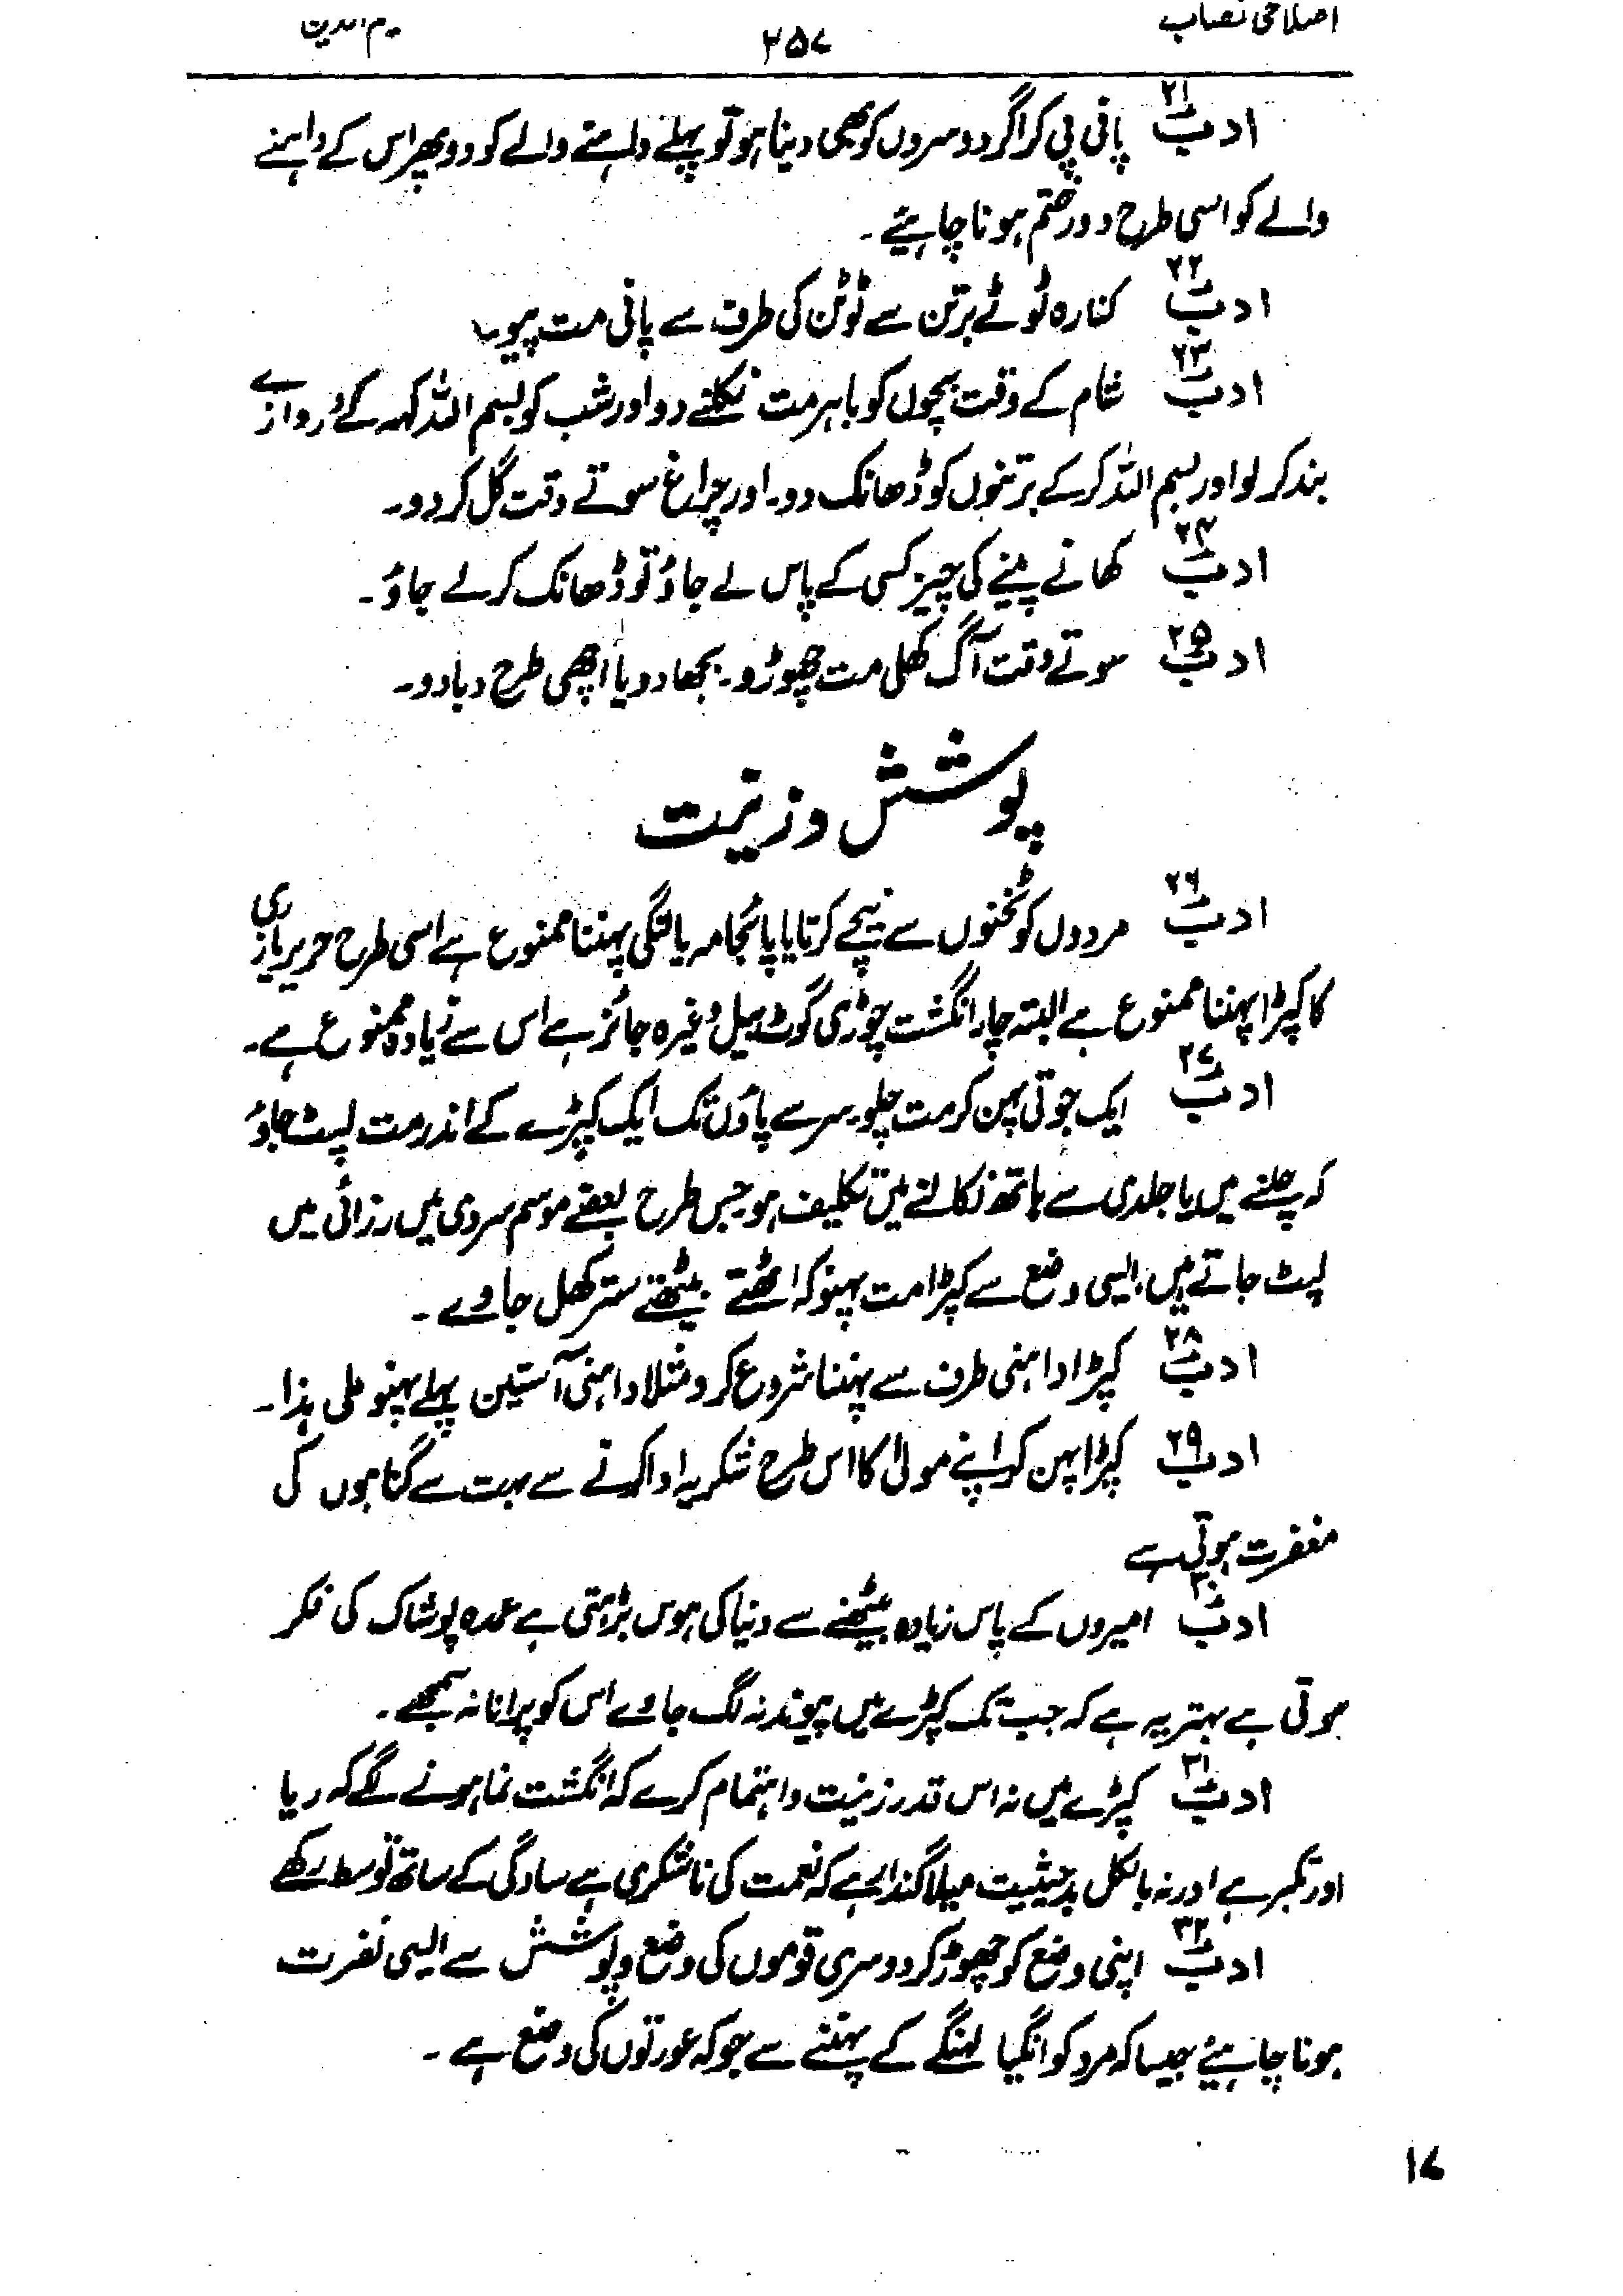 اصلاحی نصاب ۲۵۷
ادب ۲۱ پانی پی کر اگر دوسروں کو بھی دینا ہو تو پہلے داہنے والے کو دو پھر اس کے داہنے
والے کو اسی طرح دور ختم ہونا چاہیئے۔
ادب ۲۲ کنارہ ٹوٹے برتن سے ٹوٹن کی طرف سے پانی مت پیو۔
ادب ۲۳ شام کے وقت بچوں کو باہر مت نکلنے دو اور شب کو بسم اللہ کہہ کے دروازے
بند کر لو اور بسم اللہ کر کے برتنوں کو ڈھانک دو۔ اور چراغ سوتے وقت گل کر دو۔
ادب ۲۴ کھانے پینے کی چیز کسی کے پاس لے جاؤ تو ڈھانک کر لے جاؤ۔
ادب ۲۵ سوتے وقت آگ کھلی مت چھوڑو۔ بجھا دو یا اچھی طرح دبا دو۔
پوشش و زینت
ادب ۲۶ مردوں کو ٹخنوں سے نیچے کرتا یا پائجامہ یا لنگی پہننا ممنوع ہے اسی طرح حریر یا زری
کا کپڑا پہننا ممنوع ہے البتہ چار انگشت چوڑی گوٹ بیل وغیرہ جائز ہے اس سے زیادہ ممنوع ہے۔
ادب ۲۷ ایک جوتی پہن کر مت چلو۔ سر سے پاؤں تک ایک کپڑے کے اندر مت لپٹ جاؤ
کہ چلنے میں یا جلدی سے ہاتھ نکالنے میں تکلیف ہو جس طرح بعضے موسم سردی میں رزائی میں
لپٹ جاتے ہیں، ایسی وضع سے کپڑا مت پہنو کہ اٹھتے بیٹھتے ستر کھل جاوے۔
ادب ۲۸ کپڑا داہنی طرف سے پہننا شروع کرو مثلا داہنی آستین پہلے پہنو علی ہذا۔
ادب ۲۹ کپڑا پہن کر اپنے مولیٰ کا اس طرح شکریہ ادا کرنے سے بہت سے گناہوں کی
مغفرت ہوتی ہے
ادب ۳۰ امیروں کے پاس زیادہ بیٹھنے سے دنیا کی ہوس بڑھتی ہے عمدہ پوشاک کی فکر
ہوتی ہے بہتر یہ ہے کہ جب تک کپڑے میں پیوند نہ لگ جاوے اس کو پرانا نہ سمجھے۔
ادب ۳۱ کپڑے میں نہ اس قدر زینت و اہتمام کرے کہ انگشت نما ہونے لگے کہ ریا
اور تکبر ہے اور نہ بالکل بدحیثیت میلا گندا رہے کہ نعمت کی ناشکری ہے سادگی کے ساتھ توسط رکھے
ادب ۳۲ اپنی وضع کو چھوڑ کر دوسری قوموں کی وضع و پوشش سے ایسی نفرت
ہونا چاہیئے جیسا کہ مرد کو انگیا لہنگے کے پہننے سے جو کہ عورتوں کی وضع ہے۔
۱۷